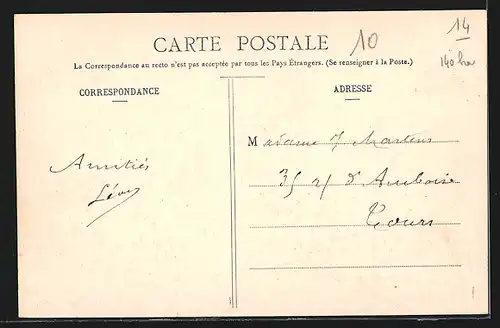 CARTE POSTALE
10
14
140
La Correspondance au recto n'est pas acceptée par tous les Pays Étrangers. (Se renseigner à la Poste.)
CORRESPONDANCE
ADRESSE
Amitiés
Madame J Martens
35 d'Amboise
Tours